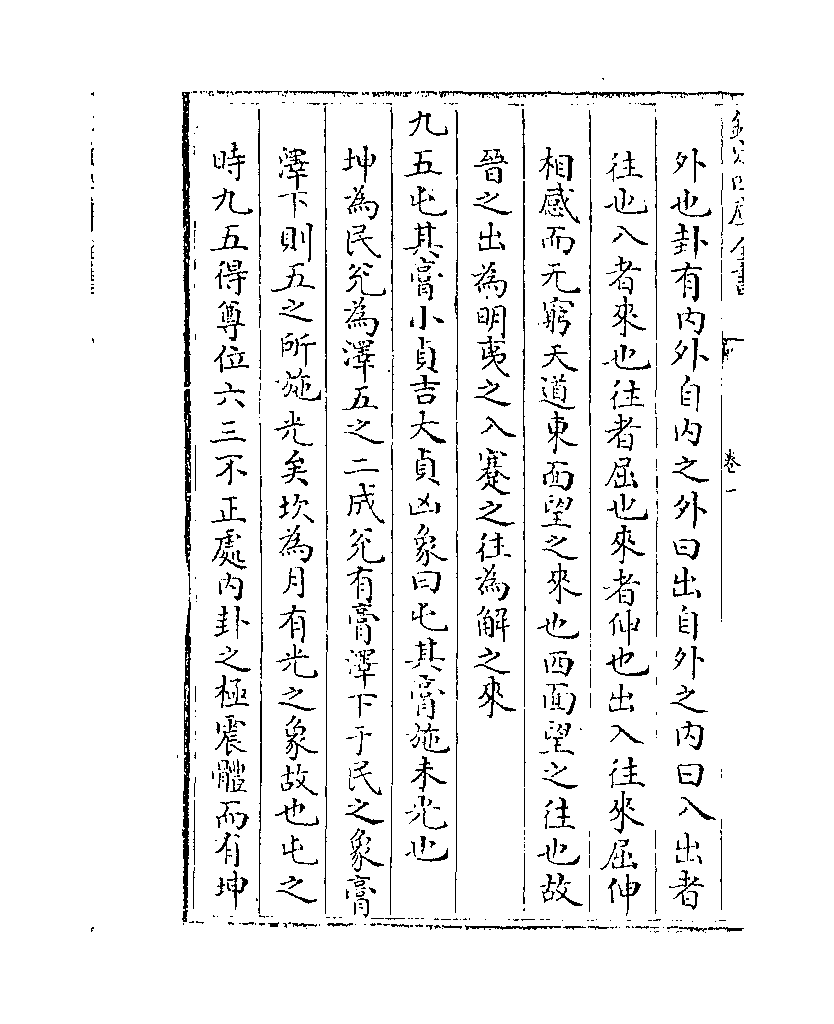 欽定四庫全書
卷一
外也卦有内外自内之外曰出自外之内曰入出者
往也入者來也往者屈也來者伸也出入往來屈伸
相感而无窮天道東面望之來也西面望之往也故
晉之出為明夷之入蹇之往為解之來
九五屯其膏小貞吉大貞凶象曰屯其膏施未光也
坤為民兊為澤五之二成兊有膏澤下于民之象膏
澤下則五之所施光矣坎為月有光之象故也屯之
時九五得尊位六三不正處内卦之極震體而有坤